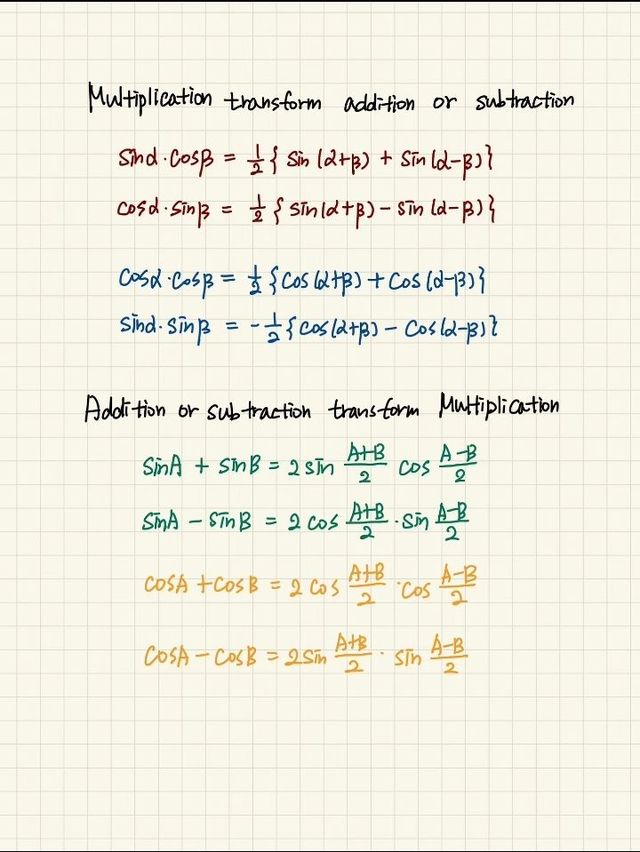 Multiplication transform addition or subtraction
sinα·cosβ = 1/2{sin(α+β) + sin(α-β)}
cosα·sinβ = 1/2{sin(α+β) - sin(α-β)}
cosα·cosβ = 1/2{cos(α+β) + cos(α-β)}
sinα·sinβ = -1/2{cos(α+β) - cos(α-β)}
Addition or subtraction transform Multiplication
sinA + sinB = 2 sin (A+B)/2 cos (A-B)/2
sinA - sinB = 2 cos (A+B)/2 · sin (A-B)/2
cosA + cosB = 2 cos (A+B)/2 · cos (A-B)/2
cosA - cosB = 2 sin (A+B)/2 · sin (A-B)/2